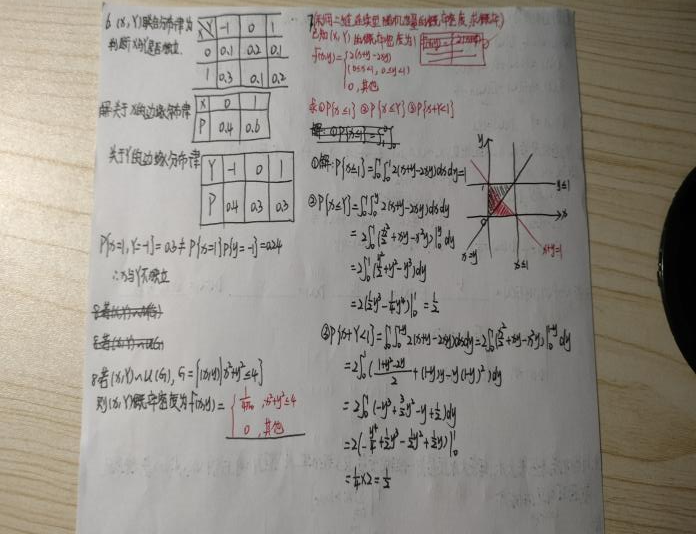 6 (x,Y)联合分布律为
判断X与Y是否独立
X\Y -1 0 1
0 0.1 0.2 0.1
1 0.3 0.1 0.2
解:关于X的边缘分布律
X 0 1
P 0.4 0.6
关于Y的边缘分布律
Y -1 0 1
P 0.4 0.3 0.3
P{x=1,Y=-1}=0.3≠P{x=1}P{y=-1}=0.24
∴x与Y不独立
8若(x,Y)~U(G),G={(x,y)|x²+y²≤4}
则(x,Y)概率密度为f(x,y)={1/4π, x²+y²≤4
0,其他
已知(x,Y)的概率密度为
f(x,y)={2(x+y-2xy)
(0≤x≤1,0≤y≤1)
0,其他
求①P{x≤1} ②P{x≤Y} ③P{x+Y<1}
①解:P{x≤1}=∫₀¹∫₀¹2(x+y-2xy)dxdy=1
②P{x≤Y}=∫₀¹∫₀ʸ2(x+y-2xy)dxdy
=2∫₀¹(x²/2+xy-x²y)|₀ʸdy
=2∫₀¹(y²/2+y²-y³)dy
=2(½y³-¼y⁴)|₀¹=½
③P{x+Y<1}=∫₀¹∫₀¹⁻ʸ2(x+y-2xy)dxdy=2∫₀¹(x²/2+xy-x²y)|₀¹⁻ʸdy
=2∫₀¹((1+y²-2y)/2+(1-y)y-y(1-y)²)dy
=2∫₀¹(-y³+3/2y²-y+½)dy
=2(-y⁴/4+½y³-½y²+½y)|₀¹
=¼×2=½
y
y≤1
x
0
x=y
x≤1
x+y=1